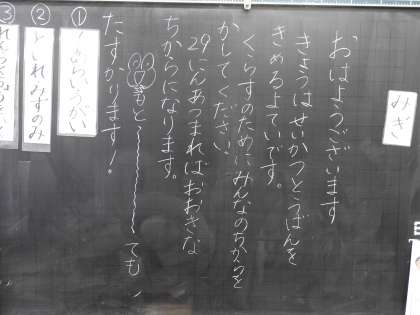 みぎ
おはようございます
きょうは せいかつとうばんを
きめるよていです。
くらすのために みんなのちからを
かしてください。
29にんあつまれば おおきな
ちからになります。
きもと〜ても
たすかります!。
①
②
といれみずのみ
③